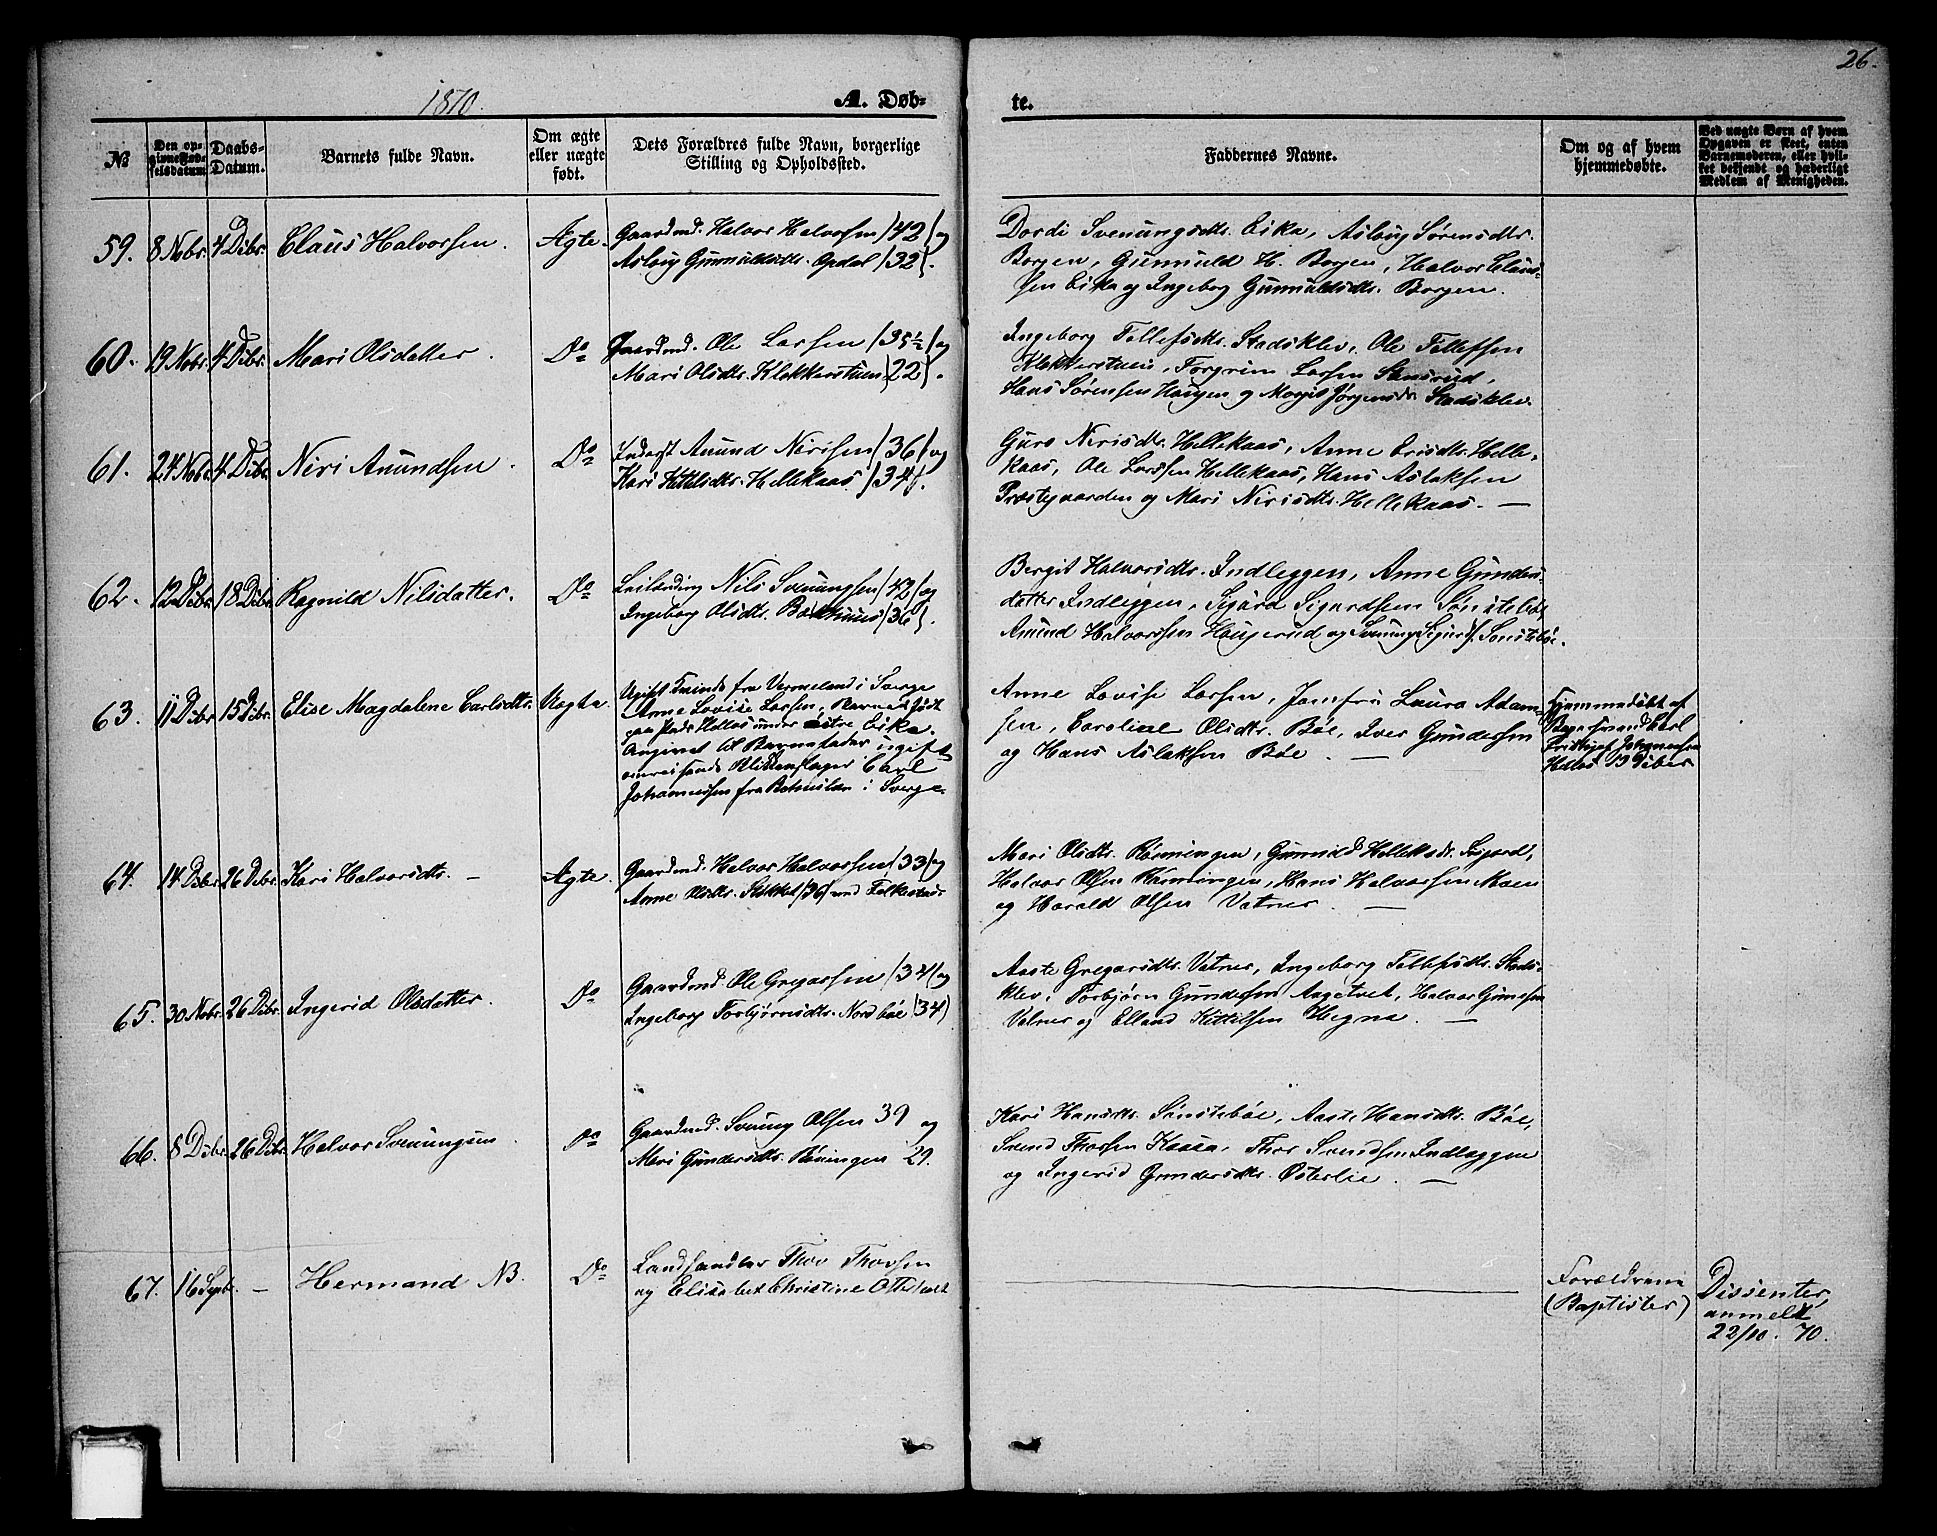 26.
1870.
A. Døb-
te.
№
Den op-
givne Fød-
selsdatum
Daabs-
Datum.
Barnets fulde Navn.
Om ægte
eller uægte
født.
Dets Forældres fulde Navn, borgerlige
Stilling og Opholdssted.
Faddernes Navne.
Om og af hvem
hjemmedøbte.
Ved uægte Børn af hvem
Opgaven er skeet, enten
Barnemoderen, eller hvil-
ket bekjendt og hæderligt
Medlem af Menigheden.
59. 8 Nobr. 4 Dcbr. Claus Halvorsen. Ægte.
Gaardmd. Halvor Halvorsen (42) og
Asloug Gunnuldsdtr. Opdal (32).
Dordi Svenungsdtr. Eika, Asloug Sørensdtr.
Borgen, Gunnuld H. Borgen, Halvor Claus-
sen Eika og Ingeborg Gunnuldsdtr. Borgen.
60. 19 Nobr. 4 Dcbr. Mari Olsdatter. Do
Gaardmd. Ole Larsen (35½) og
Mari Olsdtr. Klokkerstuen (22).
Ingeborg Tellefsdtr. Stadsklev, Ole Tellefsen
Klokkerstuen, Torgrim Larsen
Hans Sørensen Haugen og Margit Jørgensdtr Stadsklev.
61. 24 Nobr 4 Dcbr. Niri Anundsen. Do
Inderst Anund Nirisen (36) og
Kari Kittilsdtr. Hellekaas (34).
Guro Nirisdtr. Hellekaas, Anne Erisdtr. Helle-
kaas, Ole Larssen Hellekaas, Hans Aslaksen
Præstegaarden og Mari Nirisdtr. Hellekaas. —
62. 12 Dcbr. 18 Dcbr. Ragnild Nilsdatter. Do
Leilending Nils Svenungsen (42) og
Ingeborg Olsdtr. (36).
Bergit Halvorsdtr. Indleggen, Anne Gunders-
datter Indleggen, Sigurd Sigurdsen Sønstebøe,
Anund Halvorsen Haugerud og Svenung Sigurds. Sønstebøe.
63. 11 Dcbr 15 Dcbr. Elise Magdalene Carlsdtr. Uægte.
Ugift Kvinde fra Vermeland i Sverge
Anne Lovise Larsen, Barnet født
paa Pads Hellos under østre Eika.
Angivet til Barnefader ugift
omreisende Blikkenslager Carl
Johannessen fra Bohuslen i Sverge.
Anne Lovise Larsen, Jomfru Laura Adam-
sen, Caroline Olsdtr. Bøe, Iver Gundersen
og Hans Aslaksen Bøe. —
Hjemmedøbt af
Carl
Johannessen
Hellos 13 Dcber
64. 14 Dcbr. 26 Dcbr. Kari Halvorsdtr. — Ægte.
Gaardmd. Halvor Halvorsen (33) og
Anne Olsdtr. (36) und Folkestad.
Mari Olsdtr. Rønningen, Gunild Helleksdtr.
Halvor Olsen Rønningen, Hans Halvorsen Moen
og Harald Olsen Vatner. —
65. 30 Nobr. 26 Dcbr. Ingerid Olsdatter. Do
Gaardmd Ole Gregarsen (34) og
Ingeborg Torbjørnsdtr. Nordbøe (34)
Aaste Gregarsdtr. Vatner, Ingeborg Tellefsdtr. Stads-
klev, Torbjørn Gundersen Angetvet, Halvor
Vatner og Elland Kittilsen Hegna. —
66. 8 Dcbr. 26 Dcbr. Halvor Svenungsen. Do
Gaardmd. Svenung Olsen 39 og
Mari Gundersdtr. Rønningen 29.
Kari Hansdtr. Sønstebøe, Aaste Hansdtr. Bøe,
Svend Thorsen Kaasa, Thor Svendsen Indleggen
og Ingerid Gundersdtr. Østerlie. —
67. 16 Sepbr. — Hermand NB. Do
Landhandler Thov Thovsen
og Elisabet Christine
Forældrene
(Baptister)
Dissenter,
anmeldt
22/10. 70.